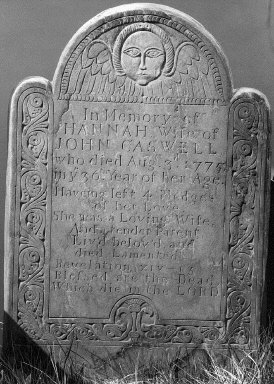 In Memory of
HANNAH Wife of
JOHN CASWELL
who died Aug
in y 30 Year of her Age
Having left 4 Pledges
of her Love
She was a Loving Wife
And tender Parent
Liv'd belov'd and
died Lamented
Revelation XIV
Blessed are the Dead
Which die in the LORD